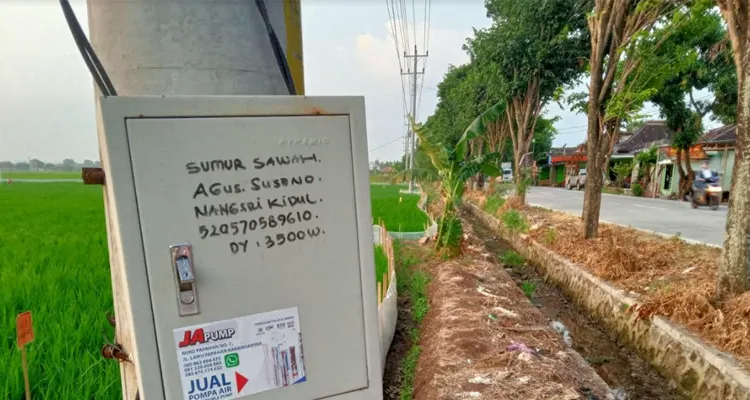 SUMUR SAWAH.
AGUS. SUSENO.
NANGSRI KIDUL.
520570589610.
DY : 3500 W.
JAPUMP
JUAL
POMPA AIR